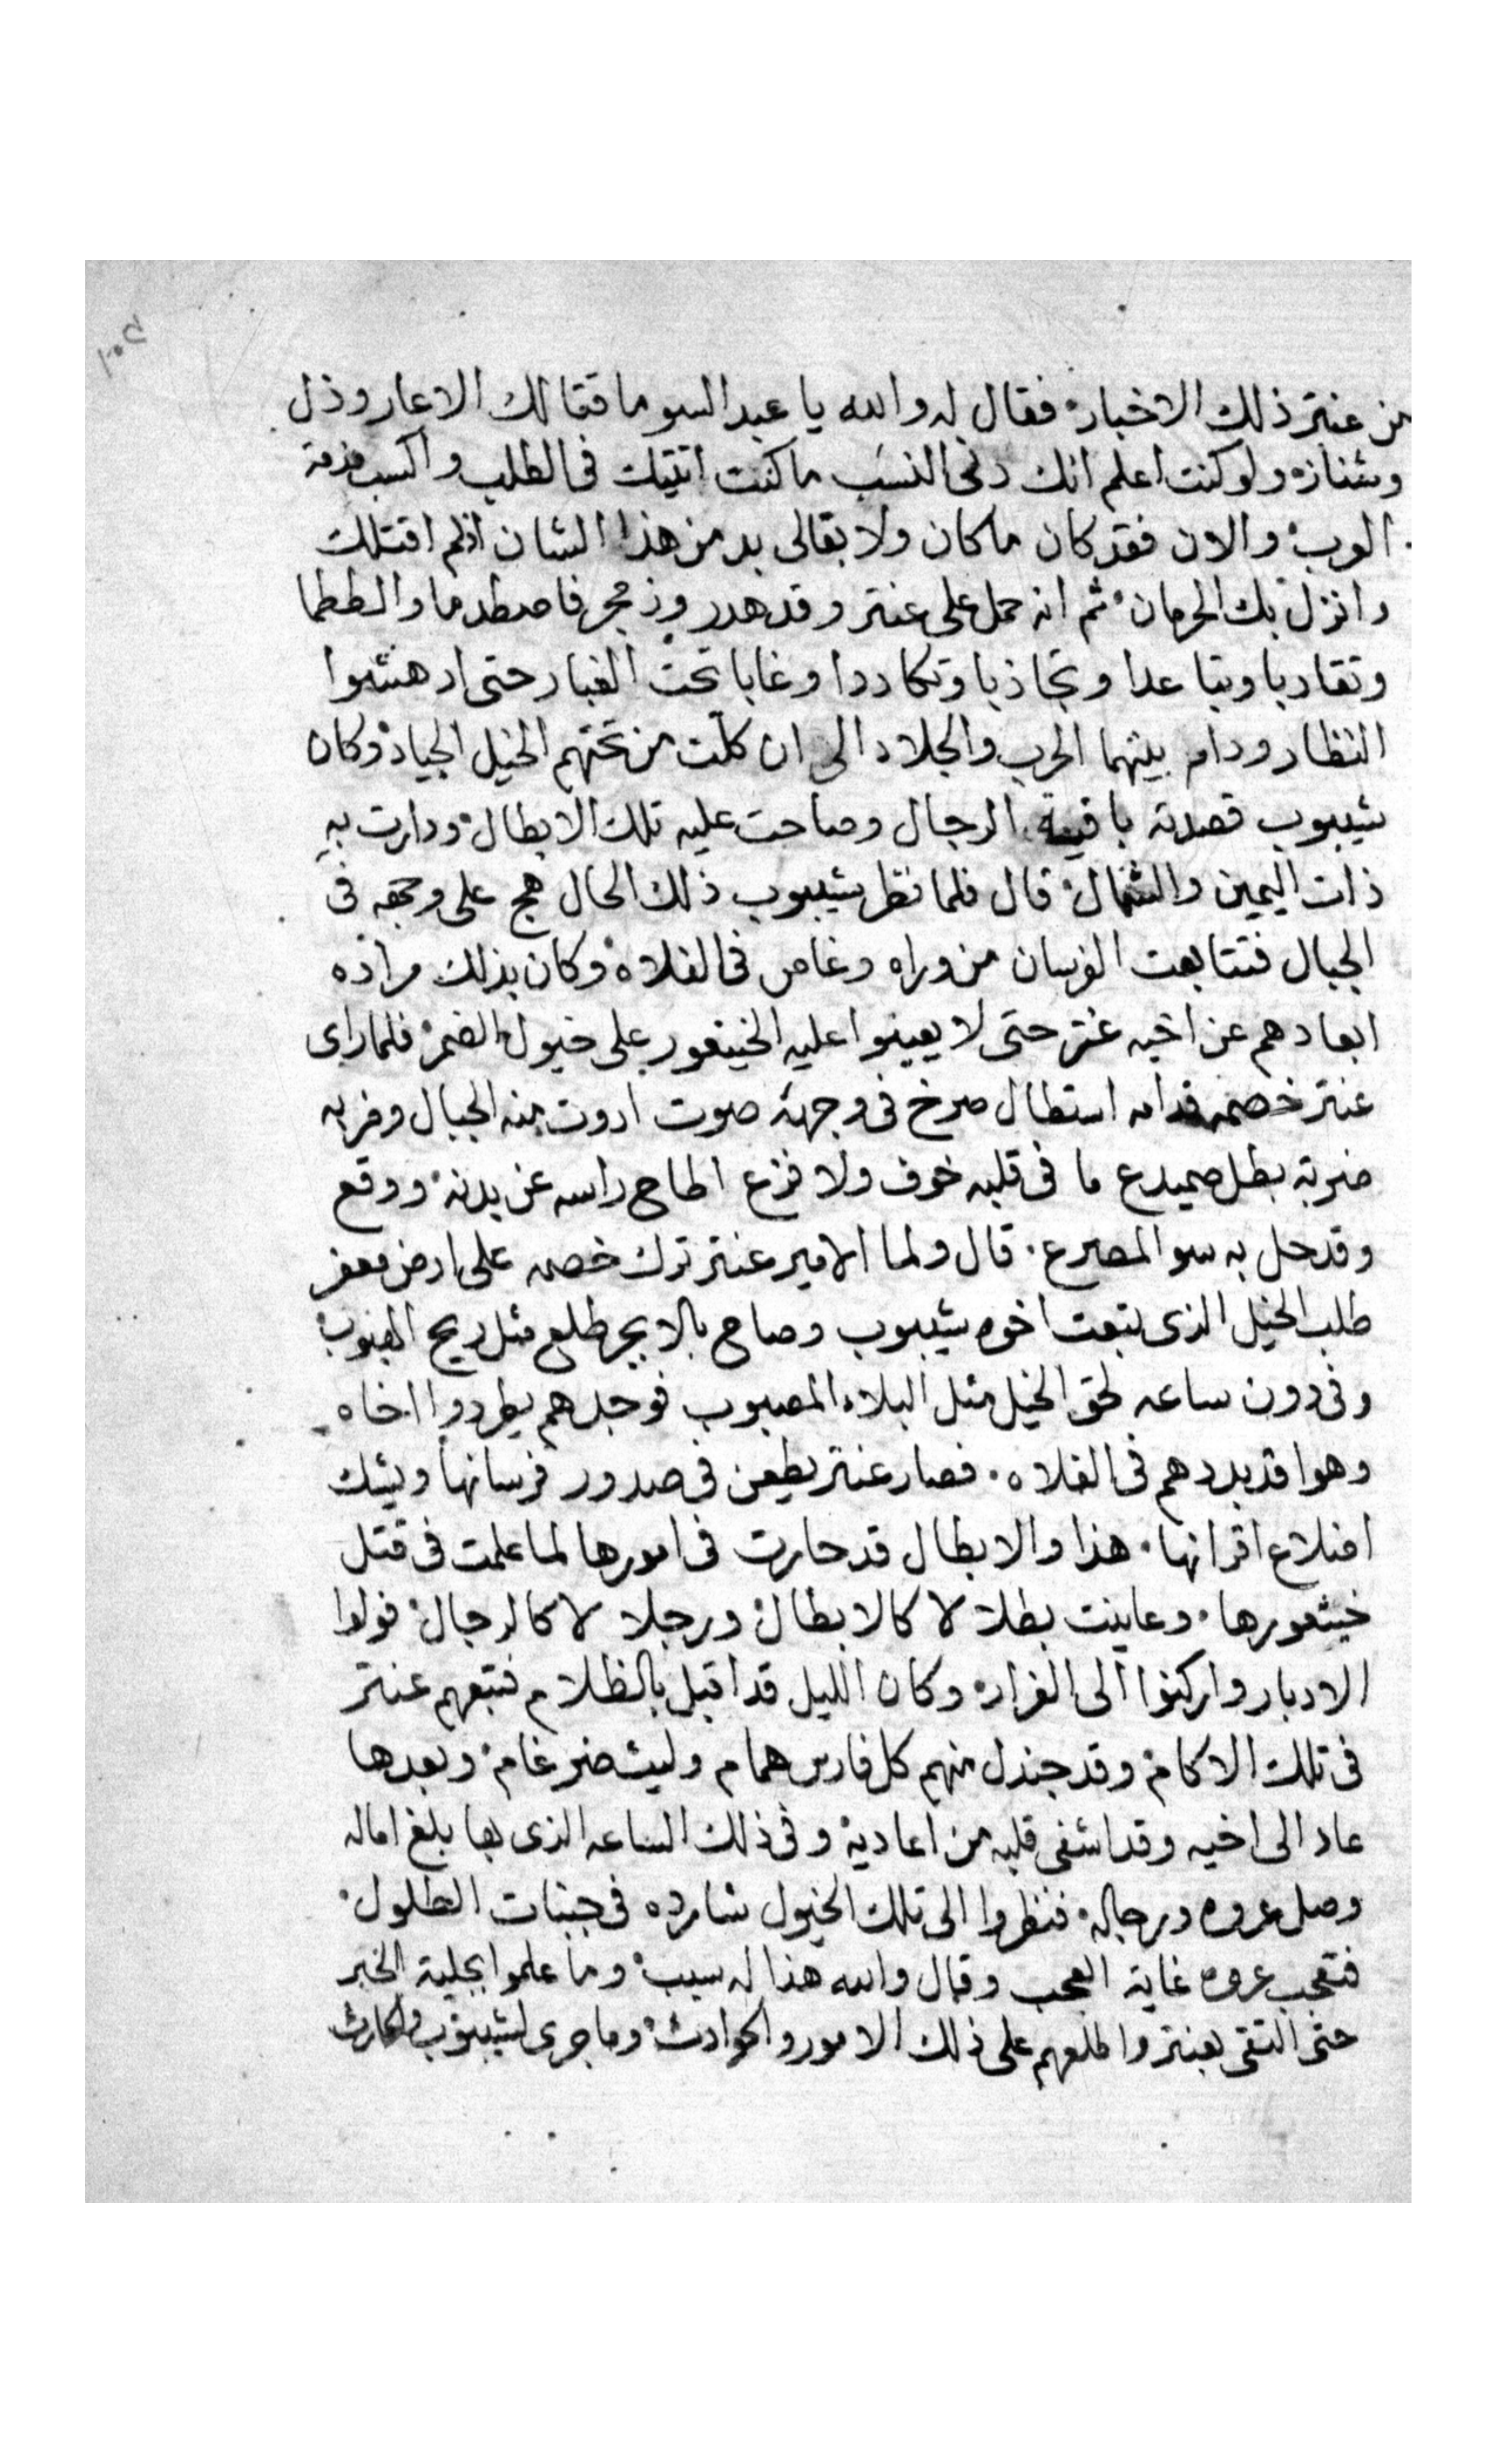 من عنتر ذلك الاخبار فقال له والله يا عبد السو ما قتالك الا عار وذل
وشنار ولو كنت اعلم انك دني النسب ما كنت اتيتك في الطلب واكسب مذمة
العرب والان فقد كان ما كان ولا بقالي بد من هذا الشان اذ لم اقتلك
وانزل بك الحرمان ثم انه حمل على عنتر وقد هدر وزمجر فاصطدما والتطما
وتقاربا وتباعدا وتجاذبا وتكاددا وغابا تحت الغبار حتى ادهشوا
النظار ودام بينهما الحرب والجلاد الى ان كلّت من تحتهم الخيل الجياد وكان
شيبوب قصدته باقية الرجال وصاحت عليه تلك الابطال ودارت به
ذات اليمين والشمال قال فلما نظر شيبوب ذلك الحال هج على وجهه في
الجبال فتتابعت الفرسان من وراه وغاص في الفلاه وكان بذلك مراده
ابعادهم عن اخيه عنتر حتى لا يعينوا عليه الخيتعور على خيول الضمر فلما راى
عنتر خصمه قدامه استطال صرخ في وجهه صوت ادوت منه الجبال وضربه
ضربة بطل صميدع ما في قلبه خوف ولا فزع اطاح راسه عن بدنه ووقع
وقد حل به سو المصرع قال ولما الامير عنتر ترك خصمه على ارض معفر
طلب الخيل الذي تبعت اخوه شيبوب وصاح بالابجر طلع مثل ريح الهبوب
وفي دون ساعه لحق الخيل مثل البلاء المصبوب فوجدهم يطردوا اخاه
وهوا قد بددهم في الفلاه فصار عنتر يطعن في صدور فرسانها ويشك
اضلاع اقرانها هذا والابطال قد حارت في امورها لما علمت في قتل
خيثعورها وعاينت بطلا لا كالابطال ورجلا لا كالرجال فولوا
الادبار واركنوا الى الفرار وكان الليل قد اقبل بالظلام فتبعهم عنتر
في تلك الاكام وقد جندل منهم كل فارس همام وليث ضرغام وبعدها
عاد الى اخيه وقد اشفى قلبه من اعاديه وفي ذلك الساعه الذي بها بلغ اماله
وصل عروه ورجاله فنظروا الى تلك الخيول شارده في جنبات الطلول
فتعجب عروه غاية العجب وقال والله هذا له سبب وما علموا بجلية الخبر
حتى التقى بعنتر واطلعهم على ذلك الامور والحوادث وما جرى لشيبوب والحارث